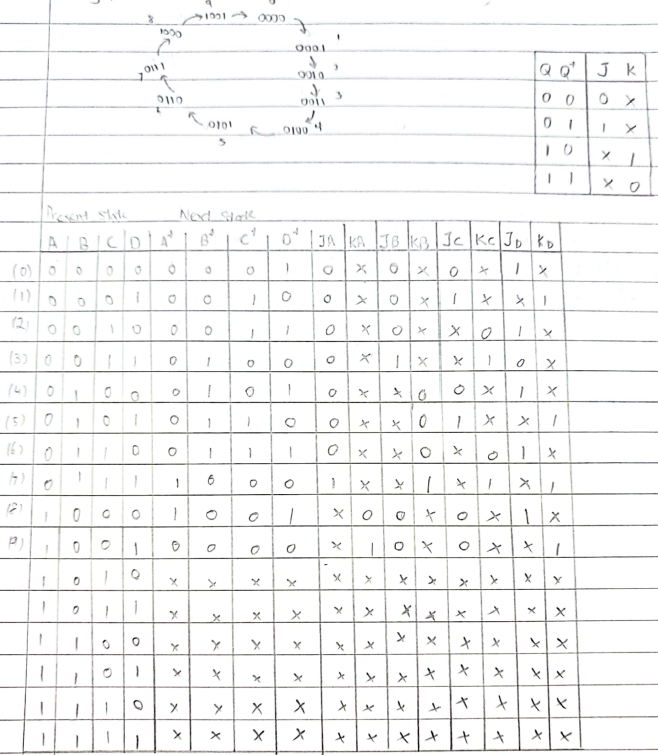 8 9 0
1000 → 1001 → 0000
0001 1
7 0111 0010 2
0110 0011 3
6
0101 0100 4
5
Q Q⁺ J K
0 0 0 x
0 1 1 x
1 0 x 1
1 1 x 0
Present state Next State
A B C D A⁺ B⁺ C⁺ D⁺ JA KA JB KB JC KC JD KD
(0) 0 0 0 0 0 0 0 1 0 x 0 x 0 x 1 x
(1) 0 0 0 1 0 0 1 0 0 x 0 x 1 x x 1
(2) 0 0 1 0 0 0 1 1 0 x 0 x x 0 1 x
(3) 0 0 1 1 0 1 0 0 0 x 1 x x 1 0 x
(4) 0 1 0 0 0 1 0 1 0 x x 0 0 x 1 x
(5) 0 1 0 1 0 1 1 0 0 x x 0 1 x x 1
(6) 0 1 1 0 0 1 1 1 0 x x 0 x 0 1 x
(7) 0 1 1 1 1 0 0 0 1 x x 1 x 1 x 1
(8) 1 0 0 0 1 0 0 1 x 0 0 x 0 x 1 x
(9) 1 0 0 1 0 0 0 0 x 1 0 x 0 x x 1
1 0 1 0 x x x x x x x x x x x x
1 0 1 1 x x x x x x x x x x x x
1 1 0 0 x x x x x x x x x x x x
1 1 0 1 x x x x x x x x x x x x
1 1 1 0 x x x x x x x x x x x x
1 1 1 1 x x x x x x x x x x x x